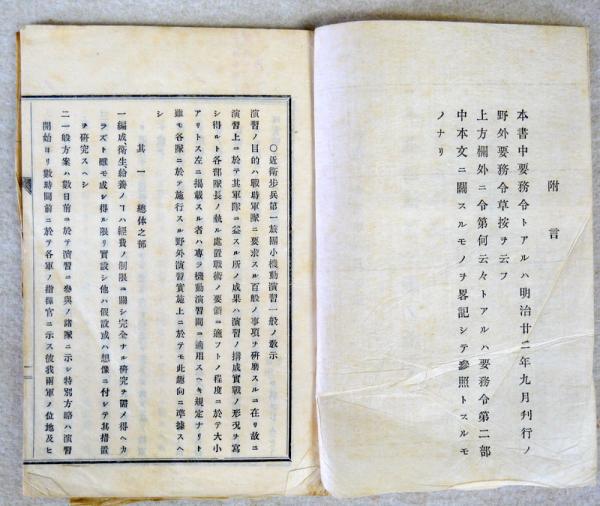 附言
本書中要務令トアルハ明治廿二年九月刊行ノ
野外要務令草按ヲ云フ
上方欄外ニ令第何云々トアルハ要務令第二部
中本文ニ關スルモノヲ畧記シテ參照トスルモ
ノナリ
〇近衛歩兵第一旅團小機動演習一般ノ敎示
演習ノ目的ハ戰時軍隊ニ要求スル百般ノ事項ヲ研磨スルニ在リ故ニ
演習上ニ於テ其軍隊ニ益スル所ノ成果ハ演習ノ搆成實戰ノ形況ヲ寫
シ得ルト各部隊長ノ執ル處置戰術ノ要領ニ適フトノ程度ニ於テ大小
アリトス左ニ掲載スル者ハ專ラ機動演習間ニ適用スヘキ規定ナリト
雖モ各隊ニ於テ施行スル野外演習實施上ニ於テモ此趣向ニ準據スヘ
シ
其一 總体之部
一編成衛生給養ノコハ經費ノ制限ニ關シ完全ナル研究ヲ爲メ得ヘカ
ラズト雖モ成シ得ル限リ實設シ他ハ假設或ハ想像ニ付シテ其措置
ヲ研究スヘシ
二一般方案ハ數日前ニ於テ演習ニ參與ノ諸隊ニ示シ特別方略ハ演習
開始ヨリ數時間前ニ於テ各軍ノ指揮官ニ示ス彼我兩軍ノ位地及ヒ